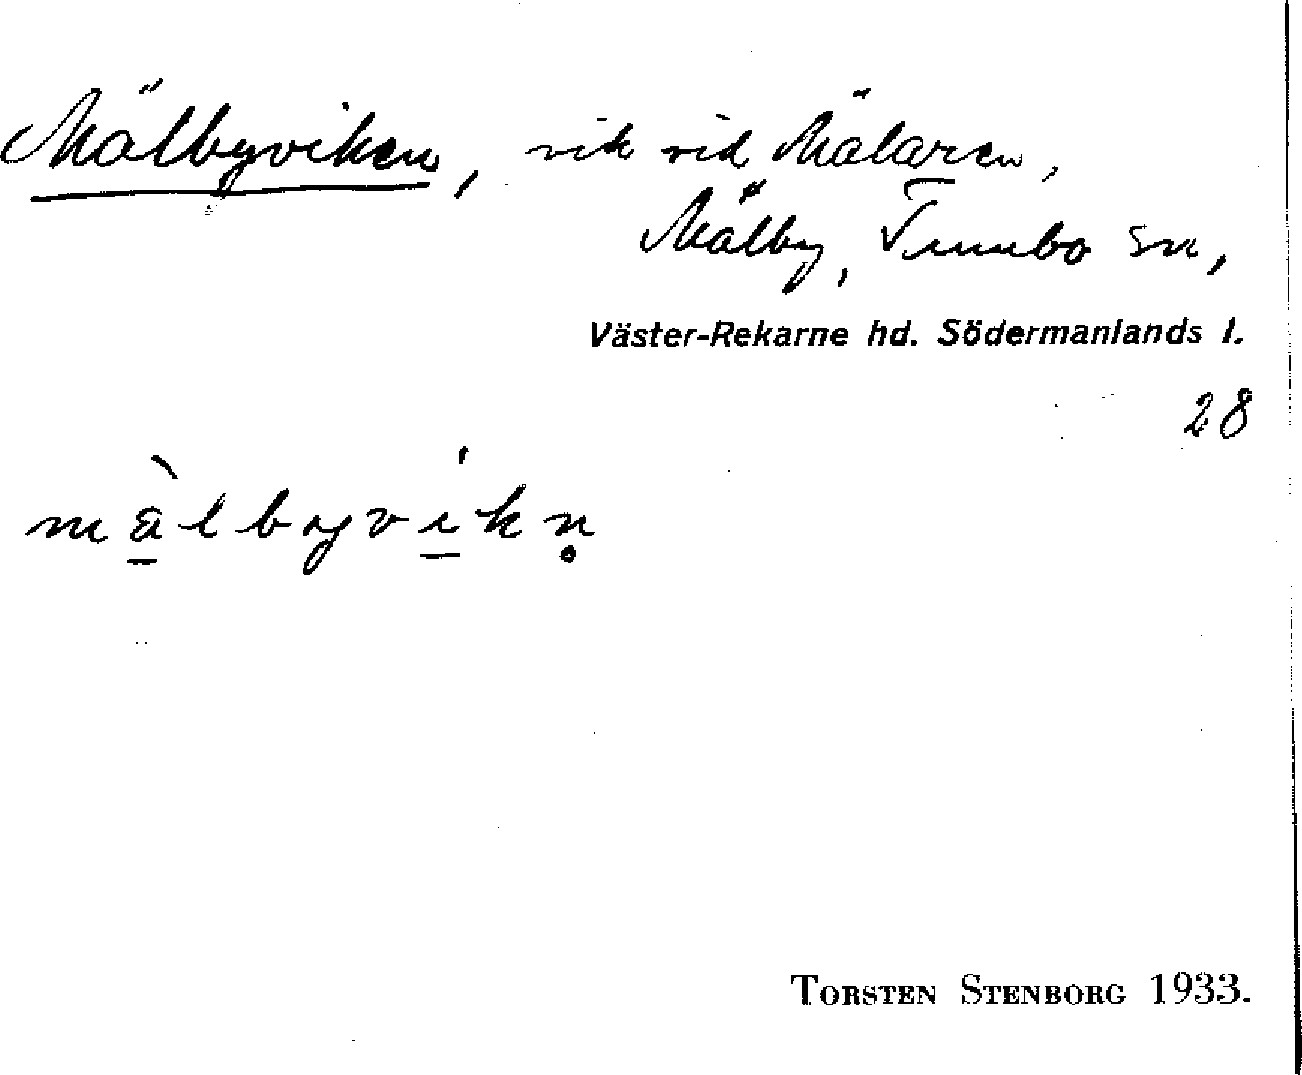 Mälbyviken, vik vid Mälaren,
Mälby, Tumbo sn,
Väster-Rekarne hd. Södermanlands l.
28
mä̀lbyvíkn̥
TORSTEN STENBORG 1933.